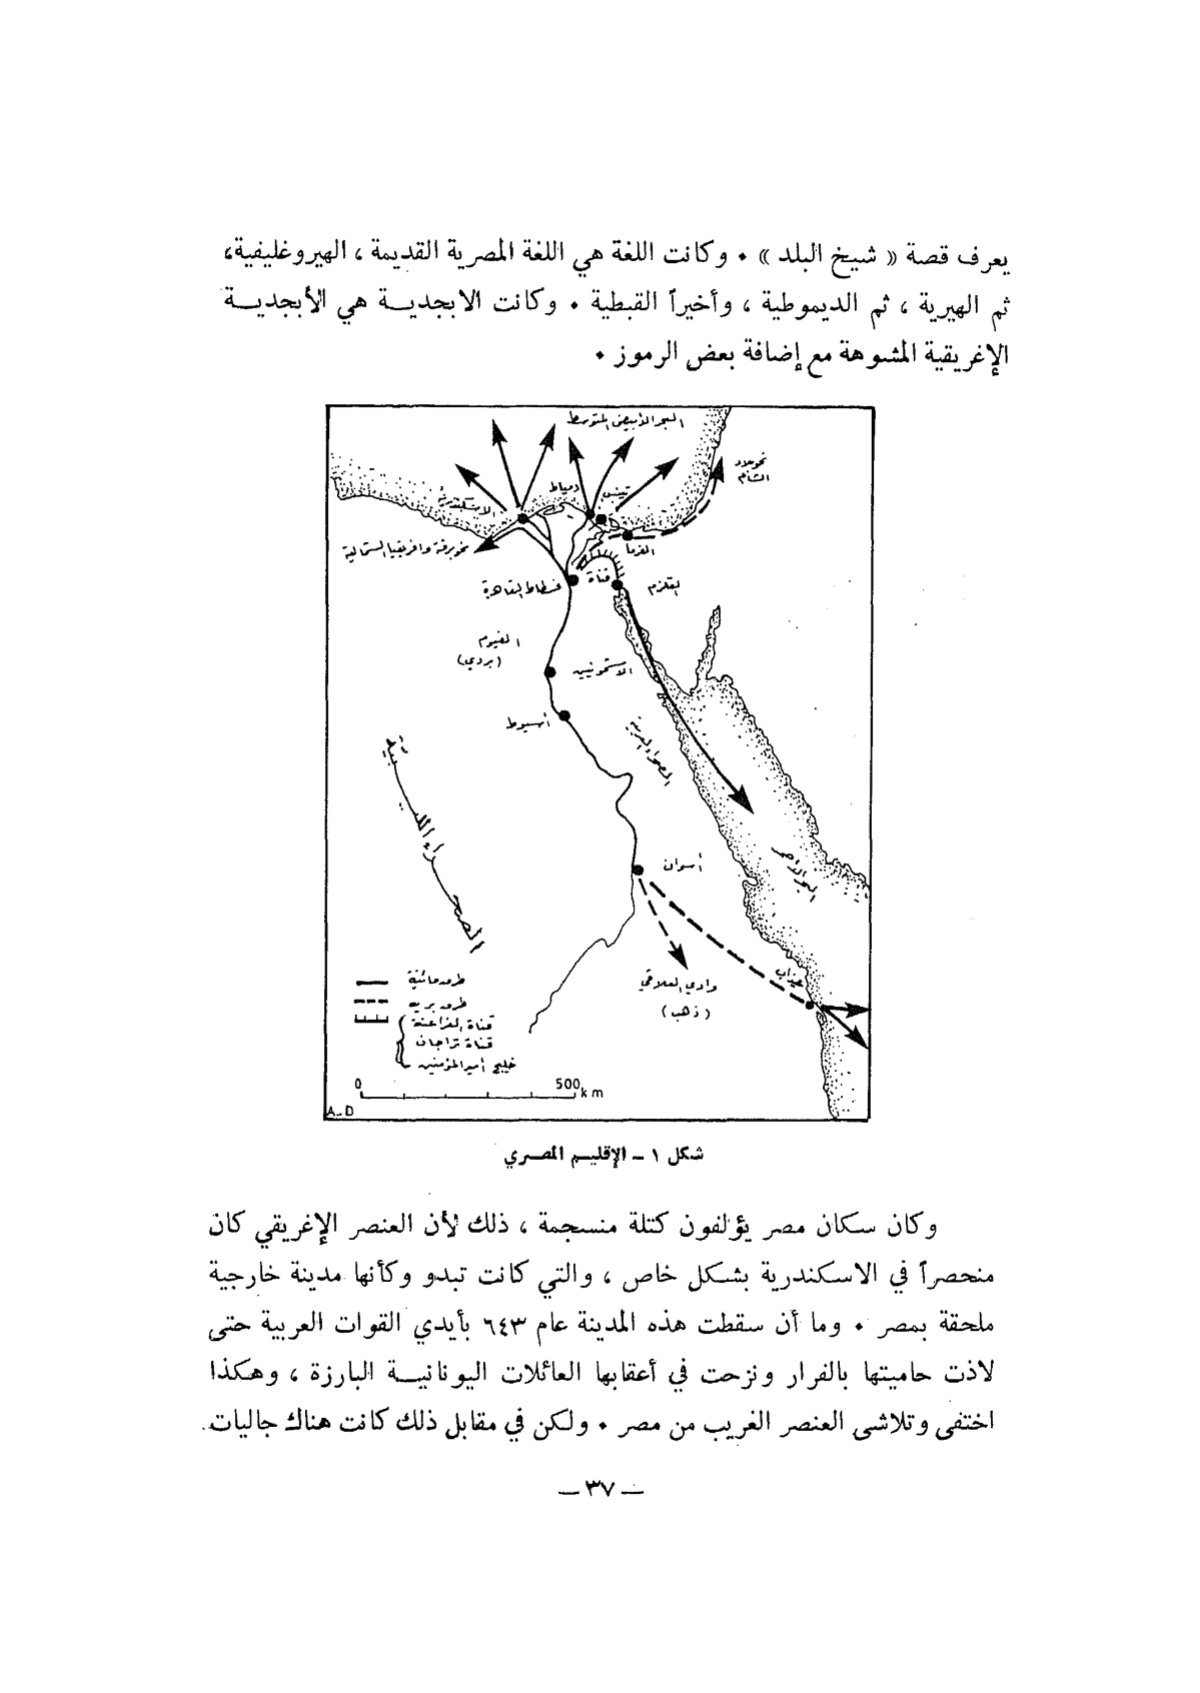 يعرف قصة « شيخ البلد » ٠ وكانت اللغة هي اللغة المصرية القديمة ، الهيروغليفية،
ثم الهيرية ، ثم الديموطية ، وأخيراً القبطية ٠ وكانت الابجديـــة هي الأبجديـــة
الإغريقية المشوهة مع إضافة بعض الرموز ٠
البحر الأبيض المتوسط
نحو بلاد
الشام
تنيس
دمياط
الاسكندرية
نحو برقة وافريقيا الشمالية
الفرما
قناة
القلزم
فسطاط القاهرة
الفيوم
(بردي)
الاشمونيين
أسيوط
الصحراء العربية
الصحـــراء الليـبـيـة
أسوان
البحر الأحمر
عيذاب
وادي العلاقي
(ذهب)
طرق مائية
طرق برية
قناة الفراعنة
قناة تراجان
خليج أمير المؤمنين
0 500 km
A-D
شكل ١ – الإقليـم المصـري
وكان سكان مصر يؤلفون كتلة منسجمة ، ذلك لأن العنصر الإغريقي كان
منحصراً في الاسكندرية بشكل خاص ، والتي كانت تبدو وكأنها مدينة خارجية
ملحقة بمصر ٠ وما أن سقطت هذه المدينة عام ٦٤٣ بأيدي القوات العربية حتى
لاذت حاميتها بالفرار ونزحت في أعقابها العائلات اليونانيـــة البارزة ، وهكذا
اختفى وتلاشى العنصر الغريب من مصر ٠ ولكن في مقابل ذلك كانت هناك جاليات
— ٣٧ —